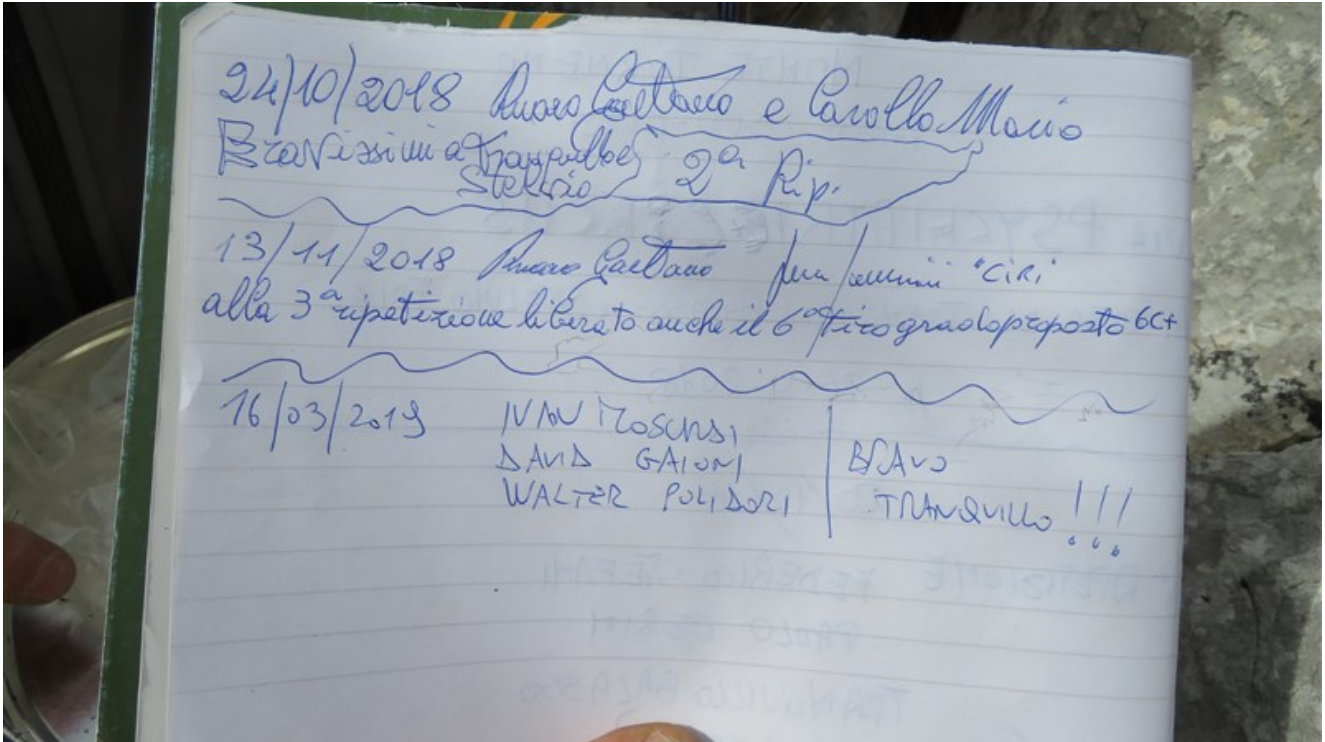 24/10/2018 Gaetano e Carollo Mario
Bravissimi a Tranquillo e 2a Rip.
Stelvio
13/11/2018 Gaetano "CiRi"
alla 3a ripetizione liberato anche il 6° tiro grado proposto 6C+
16/03/2019 IVAN MOSCARDI
DAVID GAIONI BRAVO
WALTER POLIDORI TRANQUILLO !!!